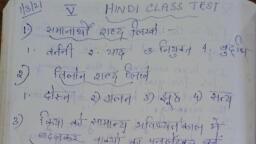 1/3/21 V HINDI CLASS TEST
1) समानार्थी शब्द लिखो :-
1. वर्तनी 2. याद 3. नियुक्त 4.
2) विलोम शब्द लिखो
1) दोस्त 2) अलग 3) झूठ 4) सत्य
3) क्रिया को सामान्य भविष्यत काल में
बदलकर वाक्यों को